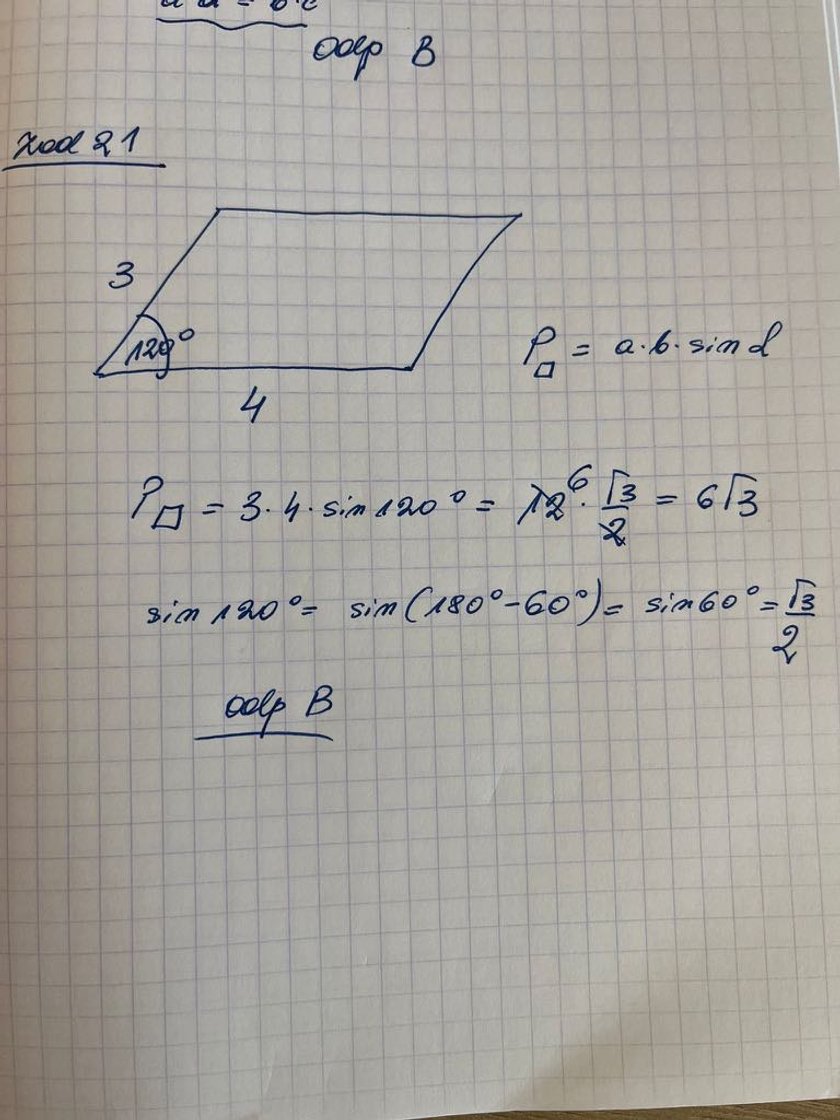 odp B
Zad 21
3
120°
4
P▱ = a·b·sin α
P▱ = 3·4·sin 120° = 12⁶ · √3/2 = 6√3
sin 120° = sin(180°-60°) = sin 60° = √3/2
odp B